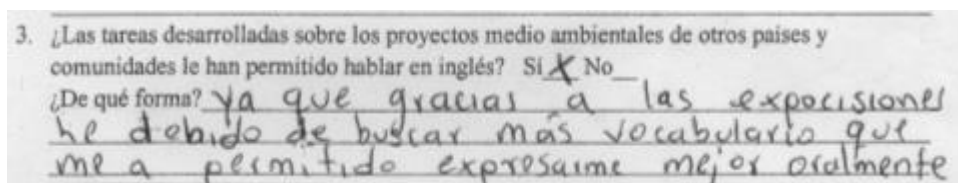 3. ¿Las tareas desarrolladas sobre los proyectos medio ambientales de otros paises y
comunidades le han permitido hablar en inglés? Sí X No__
¿De qué forma? Ya que gracias a las expocisiones
he debido de buscar más vocabulario que
me a permitido expresarme mejor oralmente